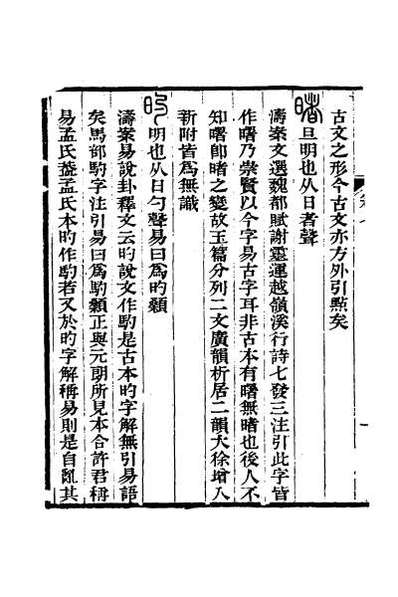 古文之形今古文亦方外引㸃矣
睹旦明也从日者聲
濤案文選魏都賦謝靈運越嶺溪行詩七發三注引此字皆
作曙乃崇賢以今字易古字耳非古本有曙無睹也後人不
知曙卽睹之變故玉篇分列二文廣韻析居二韻大徐增入
新附皆爲無識
旳明也从日勺聲易曰爲旳顙
濤案易說卦釋文云旳說文作馰是古本旳字解無引易語
矣馬部馰字注引易曰爲馰顙正與元朗所見本合許君稱
易孟氏葢孟氏本旳作馰若又於旳字解稱易則是自亂其